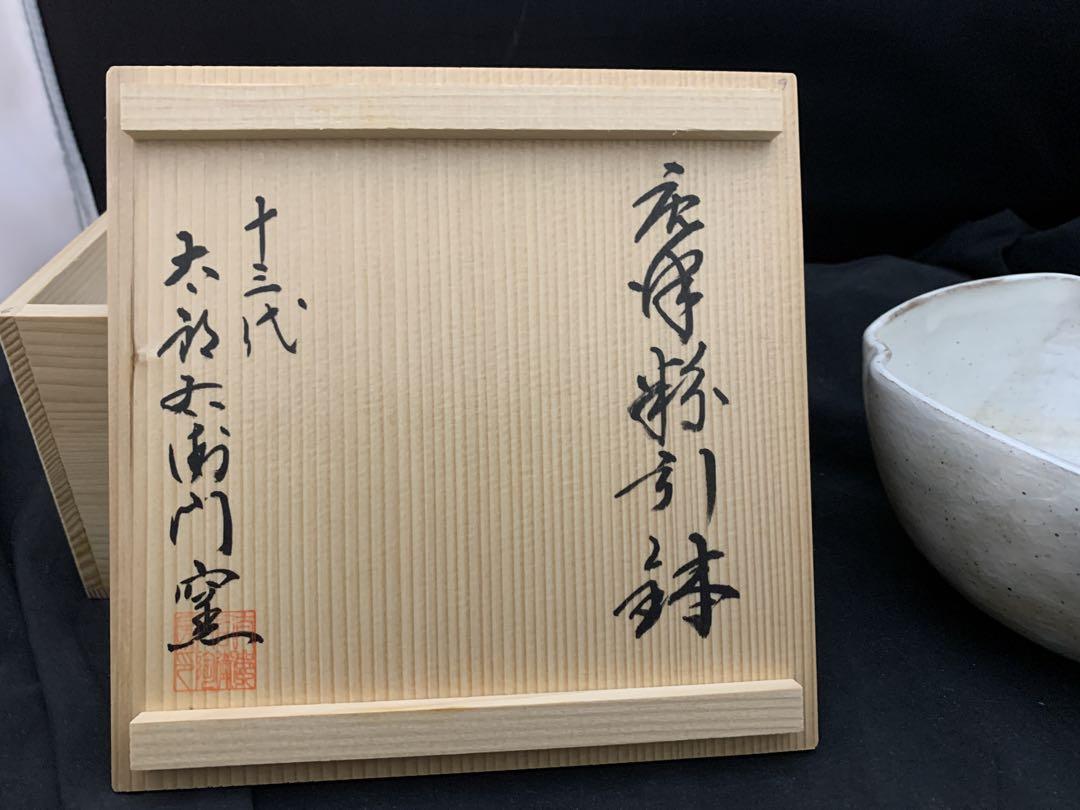 唐津粉引鉢
十三代
太郎右衛門窯